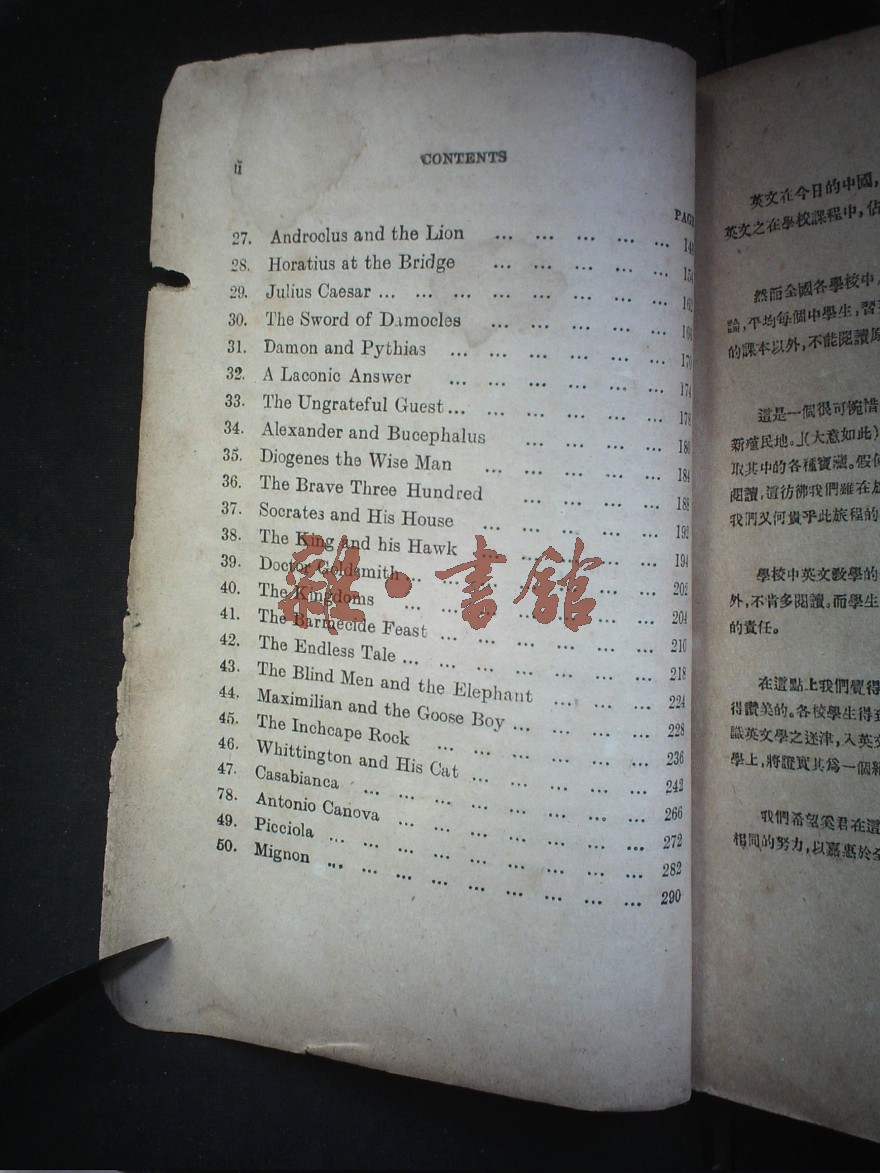 ii
CONTENTS
27. Androclus and the Lion ... ... ... ... ...
28. Horatius at the Bridge ... ... ... ... ... 154
29. Julius Caesar ... ... ... ... ... ... ... ... 162
30. The Sword of Damocles ... ... ... ... ... 166
31. Damon and Pythias ... ... ... ... ... ... 170
32. A Laconic Answer ... ... ... ... ... ... 174
33. The Ungrateful Guest ... ... ... ... ... ... 178
34. Alexander and Bucephalus ... ... ... ... 180
35. Diogenes the Wise Man ... ... ... ... ... 184
36. The Brave Three Hundred ... ... ... ... 188
37. Socrates and His House ... ... ... ... ... 192
38. The King and his Hawk ... ... ... ... ... 194
39. Doctor Goldsmith ... ... ... ... ... ... ... 202
40. The Kingdoms ... ... ... ... ... ... ... 204
41. The Barmecide Feast ... ... ... ... ... ... 210
42. The Endless Tale ... ... ... ... ... ... ... 218
43. The Blind Men and the Elephant ... ... ... 224
44. Maximilian and the Goose Boy ... ... ... ... 228
45. The Inchcape Rock ... ... ... ... ... ... 236
46. Whittington and His Cat ... ... ... ... ... 242
47. Casabianca ... ... ... ... ... ... ... ... 266
78. Antonio Canova ... ... ... ... ... ... ... 272
49. Picciola ... ... ... ... ... ... ... ... ... 282
50. Mignon ... ... ... ... ... ... ... ... ... 290
雜·書館
英文在今日的中國，
英文之在學校課程中，佔
然而全國各學校中，
論，平均每個中學生，習
的課本以外，不能閱讀原
這是一個很可惋惜
新殖民地。」（大意如此）
取其中的各種寶藏。假
閱讀，這彷彿我們雖在
我們又何貴乎此旅程的
學校中英文教學的
外，不肯多閱讀。而學生
的責任。
在這點上我們覺得
得讚美的。各校學生得
識英文學之迷津，入英文
學上，將證實其爲一個
我們希望奚君在這
相同的努力，以嘉惠於全